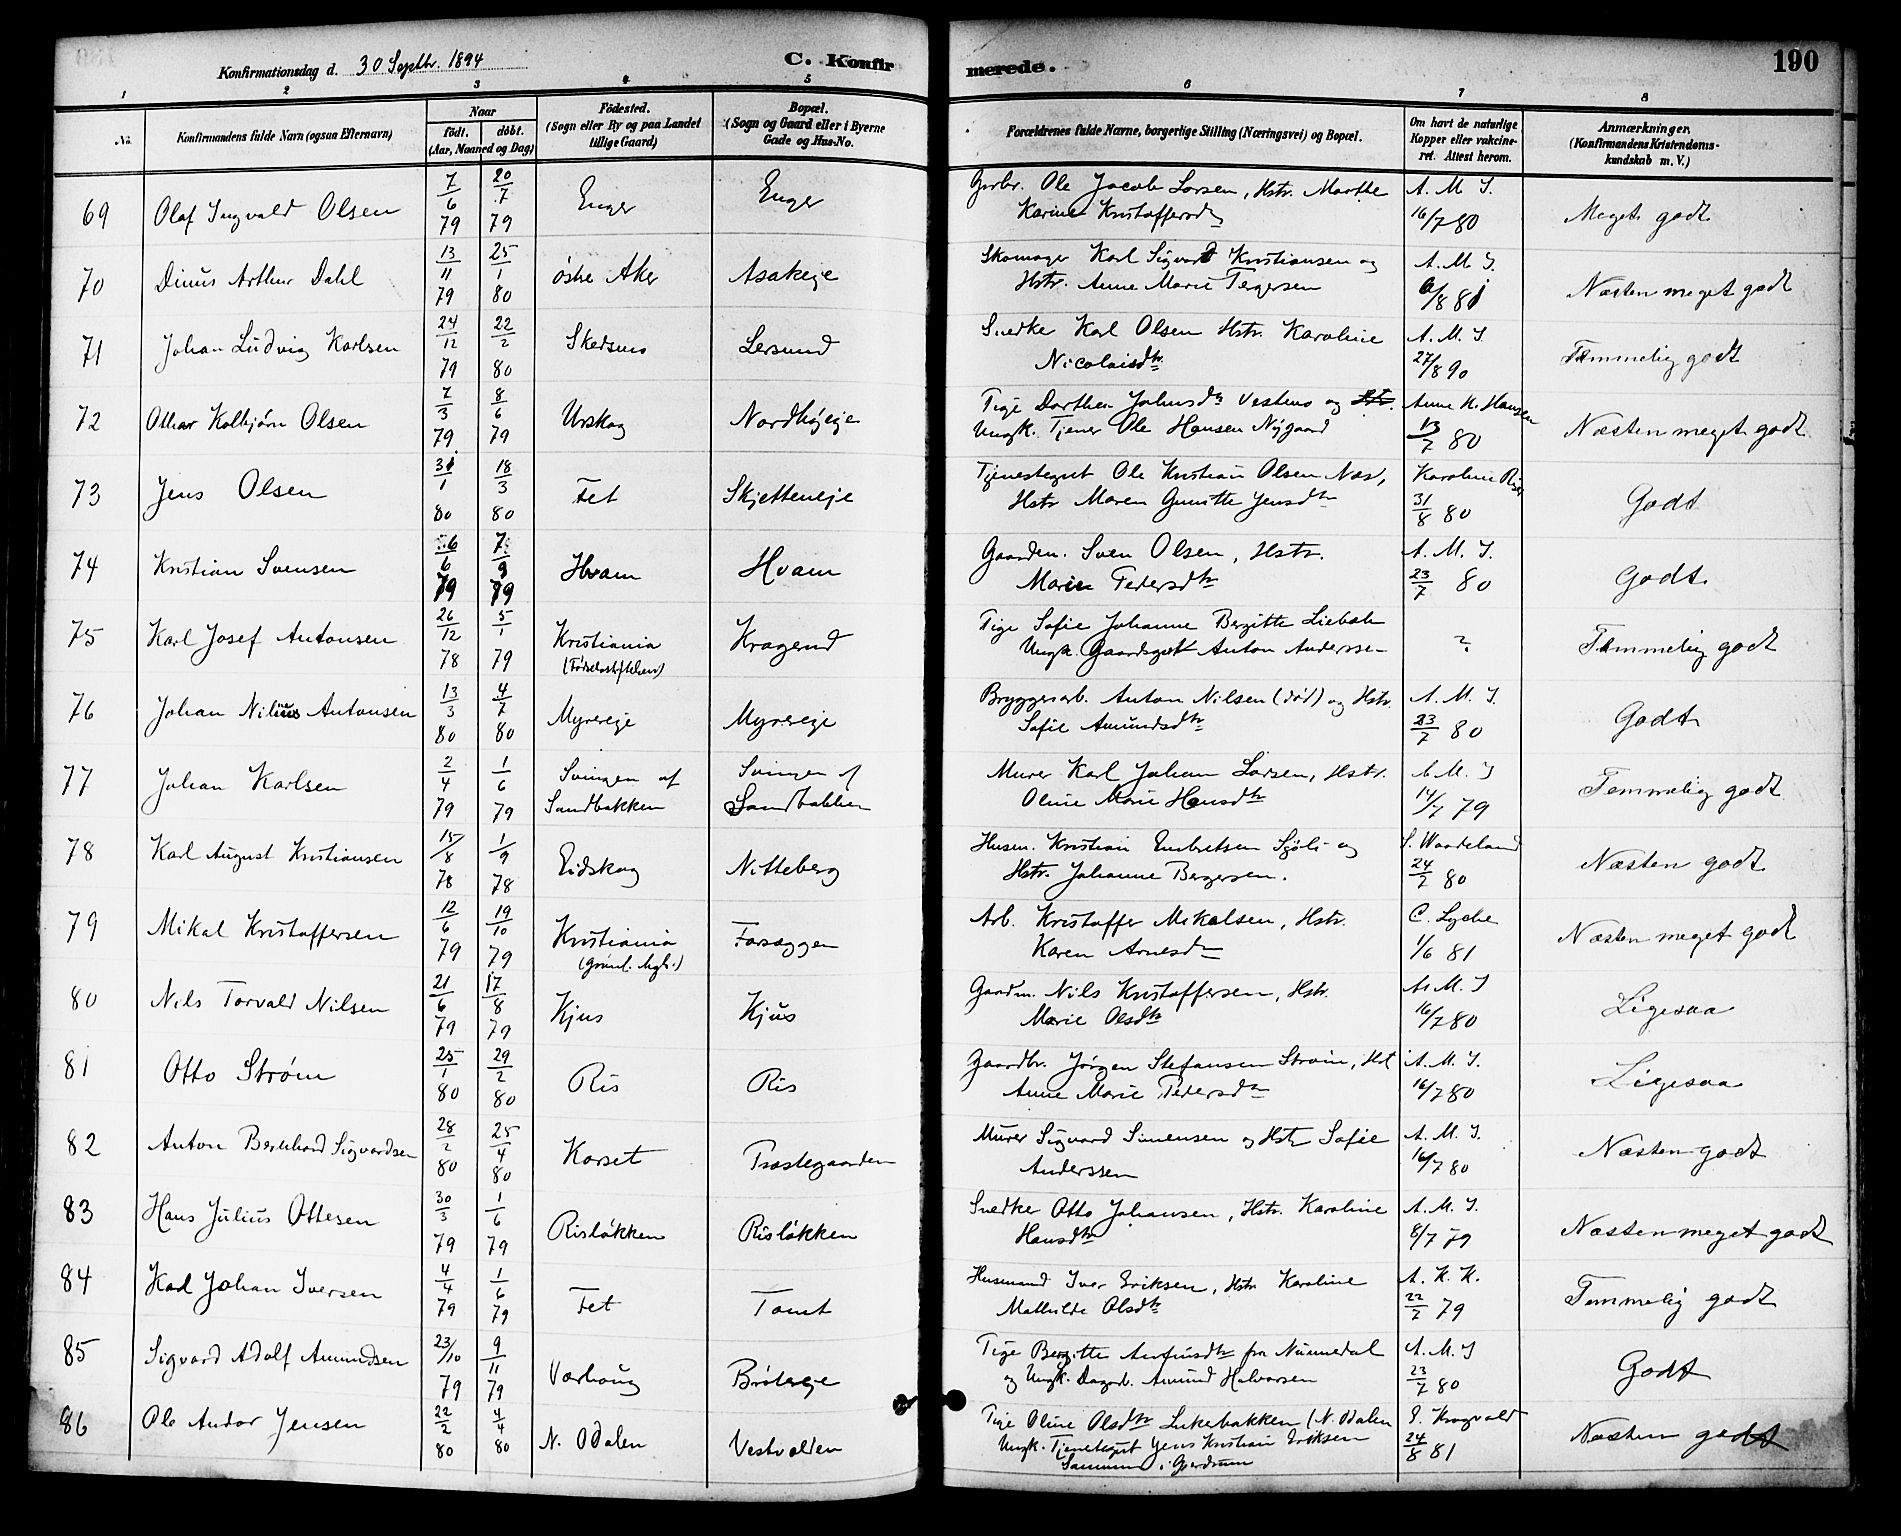 Konfirmationsdag d. 30 Septbr. 1894
C. Konfirmerede.
190
1 2 3 4 5 6 7 8
No.
Konfirmandens fulde Navn (ogsaa Efternavn)
Naar
født. døbt.
(Aar, Maaned og Dag)
Fødested.
(Sogn eller By og paa Landet
tillige Gaard)
Bopæl.
(Sogn og Gaard eller i Byerne
Gade og Hus-No.
Forældrenes fulde Navne, borgerlige Stilling (Næringsvei) og Bopæl.
Om havt de naturlige
Kopper eller vakcine-
ret. Attest herom.
Anmærkninger.
(Konfirmandens Kristendoms-
kundskab m. V.)
69 Olaf Ingvald Olsen 7/6 79 20/7 79 Enger Enger Gbr. Ole Jacob Larsen, Hstr. Marthe
Karine Kristoffersdtr A. M. I. 16/7 80 Meget godt
70 Dinus Arthur Dahl 13/11 79 25/1 80 østre Aker Asakeje Skomager Karl Sigvard Kristiansen og
Hstr. Anne Marie Tergersen A. M. I. 6/8 81 Næsten meget godt
71 Johan Ludvig Karlsen 24/12 79 22/2 80 Skedsmo Lersund Snedke Karl Olsen Hstr. Karoline
Nicolaisdtr A. M. I. 27/8 90 Temmelig godt
72 Othar Kolbjørn Olsen 7/3 79 8/6 79 Urskog Nordbyeje Pige Dorthea Johnsdtr Vestmo og Hstr.
Ungk. Tjener Ole Hansen Nygaard Anne K. Hansen 13/7 80 Næsten meget godt
73 Jens Olsen 31/1 80 18/3 80 Fet Skjetteneje Tjenestegut Ole Kristian Olsen Næs,
Hstr Maren Gunitte Jensdtr Karoline Riser 31/8 80 Godt
74 Kristian Svensen 26/6 79 7/9 79 Hvam Hvam Gaardm. Sven Olsen, Hstr.
Marie Pedersdtr A. M. I. 23/7 80 Godt
75 Karl Josef Antonsen 26/12 78 5/1 79 Kristiania
(Fødselsstiftelsen) Kragerud Pige Sofie Johanne Bergitte Liebak
Ungk. Gaardsgut Anton Anderssen ? Temmelig godt
76 Johan Nilius Antonsen 13/3 80 4/7 80 Myrereje Myrereje Bryggerarb. Anton Nilsen (død) og Hstr.
Sofie Amundsdtr A. M. I. 23/7 80 Godt
77 Johan Karlsen 2/4 79 1/6 79 Svingen af
Sandbakken Svingen af
Sandbakken Murer Karl Johan Larsen, Hstr.
Oline Marie Hansdtr A. M. I 14/7 79 Temmelig godt
78 Karl August Kristiansen 15/8 78 1/9 78 Eidskog Nitteberg Husm. Kristian Embretsen Sjøli og
Hstr. Johanne Bergersen. S. Waadeland 24/7 80 Næsten godt
79 Mikal Kristoffersen 12/6 79 19/10 79 Kristiania
(Grønl. Mgh.) Farseggen Arb. Kristoffer Mikalsen, Hstr.
Karen Arnesdtr C. Lyche 1/6 81 Næsten meget godt
80 Nils Torvald Nilsen 21/6 79 17/8 79 Kjus Kjus Gaardm. Nils Kristoffersen, Hstr.
Marie Olsdtr A. M. I 16/7 80 Ligesaa
81 Otto Strøm 25/1 80 29/2 80 Ris Ris Gaardbr. Jørgen Stefansen Strøm, Hst
Anne Marie Pedersdtr A. M. I. 16/7 80 Ligesaa
82 Anton Bernhard Sigvardsen 28/2 80 25/4 80 Korset Præstegaarden Murer Sigvard Simensen og Hstr Sofie
Anderssen A. M. I. 16/7 80 Næsten godt
83 Hans Julius Ottesen 30/3 79 1/6 79 Risløkken Risløkken Snedke Otto Johansen, Hstr. Karoline
Hansdtr A. M. I. 8/7 79 Næsten meget godt
84 Karl Johan Iversen 4/4 79 1/6 79 Fet Tomt Husmand Iver Eriksen, Hstr Karoline
Mathilde Olsdtr A. K. K. 22/7 79 Temmelig godt
85 Sigvard Adolf Amundsen 23/10 79 9/11 79 Varhaug Bråteeje Pige Bergitte Anfinsdtr fra Numedal
og Ungk. Dagarb. Amund Halvorsen A. M. I 23/7 80 Godt
86 Ole Andor Jensen 22/2 80 4/4 80 N. Odalen Vestvolden Pige Oline Olsdtr Lukebakken (N. Odalen
Ungk. Tjenetegut Jens Kristian Eriksen
Sammun i Gjerdrum I. Kragvald 24/8 81 Næsten godt